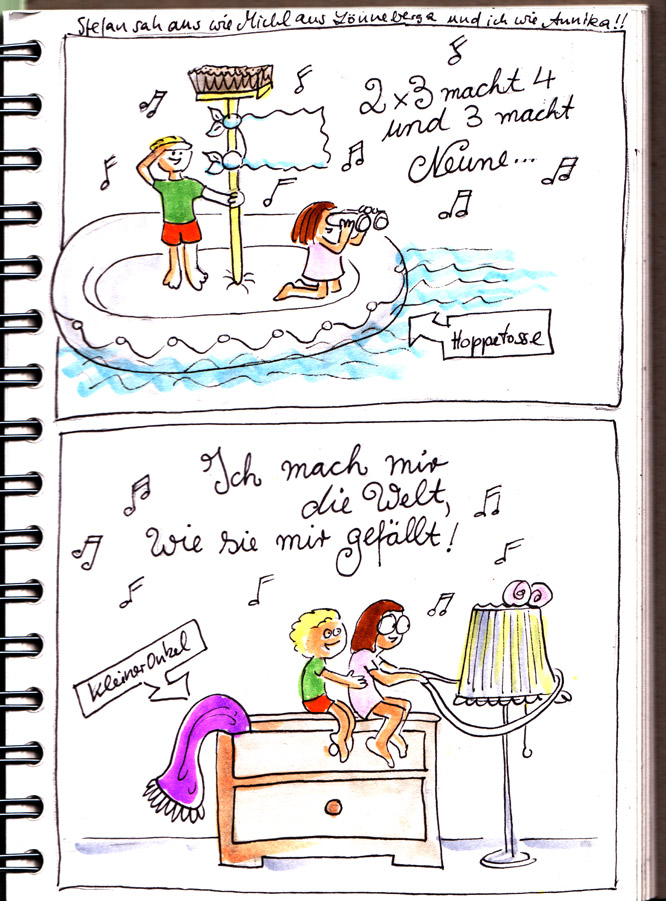 Stefan sah aus wie Michl aus Lönneberga und ich wie Annika!!
2x3 macht 4
und 3 macht
Neune...
Hoppetosse
Ich mach mir
die Welt,
wie sie mir gefällt!
kleiner Onkel